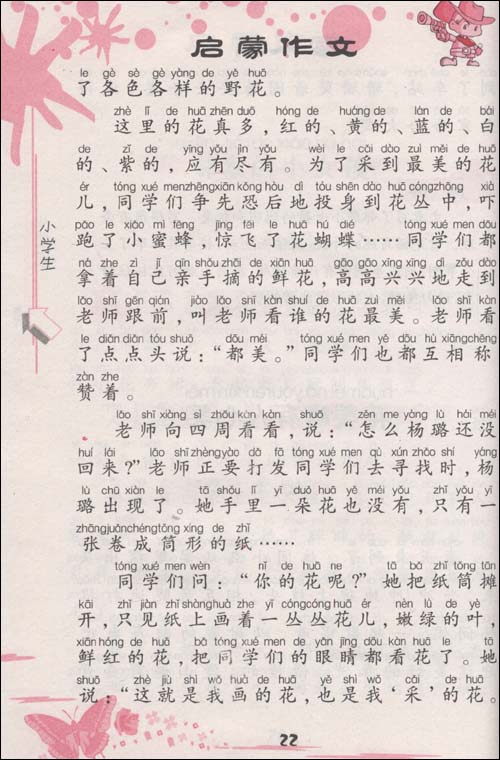 启蒙作文
le gè sè gè yàng de yě huā
了各色各样的野花。
zhè lǐ de huā zhēn duō hóng de huáng de lán de bái
这里的花真多，红的、黄的、蓝的、白
de zǐ de yīng yǒu jìn yǒu wèi le cǎi dào zuì měi de huā
的、紫的，应有尽有。为了采到最美的花
ér tóng xué men zhēng xiān kǒng hòu dì tóu shēn dào huā cóng zhōng xià
儿，同学们争先恐后地投身到花丛中，吓
pǎo le xiǎo mì fēng jīng fēi le huā hú dié tóng xué men dōu
跑了小蜜蜂，惊飞了花蝴蝶……同学们都
ná zhe zì jǐ qīn shǒu zhāi de xiān huā gāo gāo xìng xìng dì zǒu dào
拿着自己亲手摘的鲜花，高高兴兴地走到
lǎo shī gēn qián jiào lǎo shī kàn shuí de huā zuì měi lǎo shī kàn
老师跟前，叫老师看谁的花最美。老师看
le diǎn diǎn tóu shuō dōu měi tóng xué men yě dōu hù xiāng chēng
了点点头说：“都美。”同学们也都互相称
zàn zhe
赞着。
lǎo shī xiàng sì zhōu kàn kàn shuō zěn me yáng lù hái méi
老师向四周看看，说：“怎么杨璐还没
huí lái lǎo shī zhèng yào dǎ fā tóng xué men qù xún zhǎo shí yáng
回来？”老师正要打发同学们去寻找时，杨
lù chū xiàn le tā shǒu lǐ yī duǒ huā yě méi yǒu zhǐ yǒu yī
璐出现了。她手里一朵花也没有，只有一
zhāng juǎn chéng tǒng xíng de zhǐ
张卷成筒形的纸……
tóng xué men wèn nǐ de huā ne tā bǎ zhǐ tǒng tān
同学们问：“你的花呢？”她把纸筒摊
kāi zhǐ jiàn zhǐ shàng huà zhe yī cóng cóng huā ér nèn lǜ de yè
开，只见纸上画着一丛丛花儿，嫩绿的叶，
xiān hóng de huā bǎ tóng xué men de yǎn jīng dōu kàn huā le tā
鲜红的花，把同学们的眼睛都看花了。她
shuō zhè jiù shì wǒ huà de huā yě shì wǒ cǎi de huā
说：“这就是我画的花，也是我‘采’的花。
小学生
22